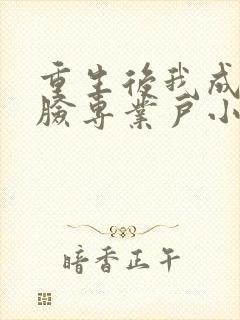 重生後我成
臉專業戶小
暗香正午